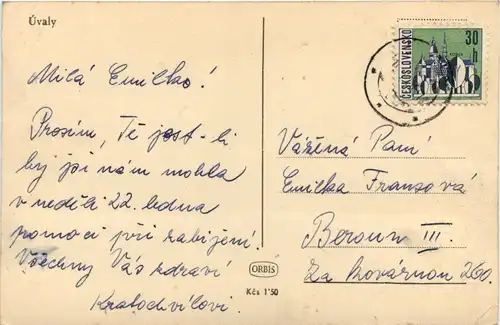 Úvaly
Milá Emilko!
Prosím, Tě jest-li
by jsi nám mohla
v neděli 22. ledna
pomoci při zabíjení
Všechny Vás zdraví
Kratochvílovi.
ČESKOSLOVENSKO
30
h
Vážená Paní
Emilka Fransová
Beroun III.
Za Kovárnou 260.
ORBIS
Kčs 1'50